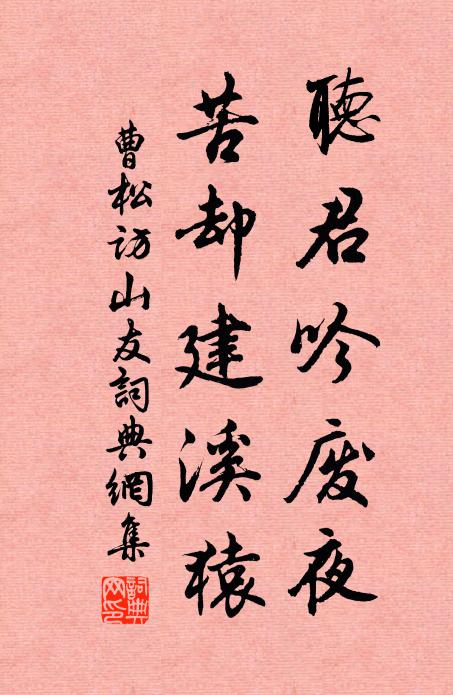 聽君吟廢夜
苦却建溪猿
曹松訪山友詞典網集
詞典網印